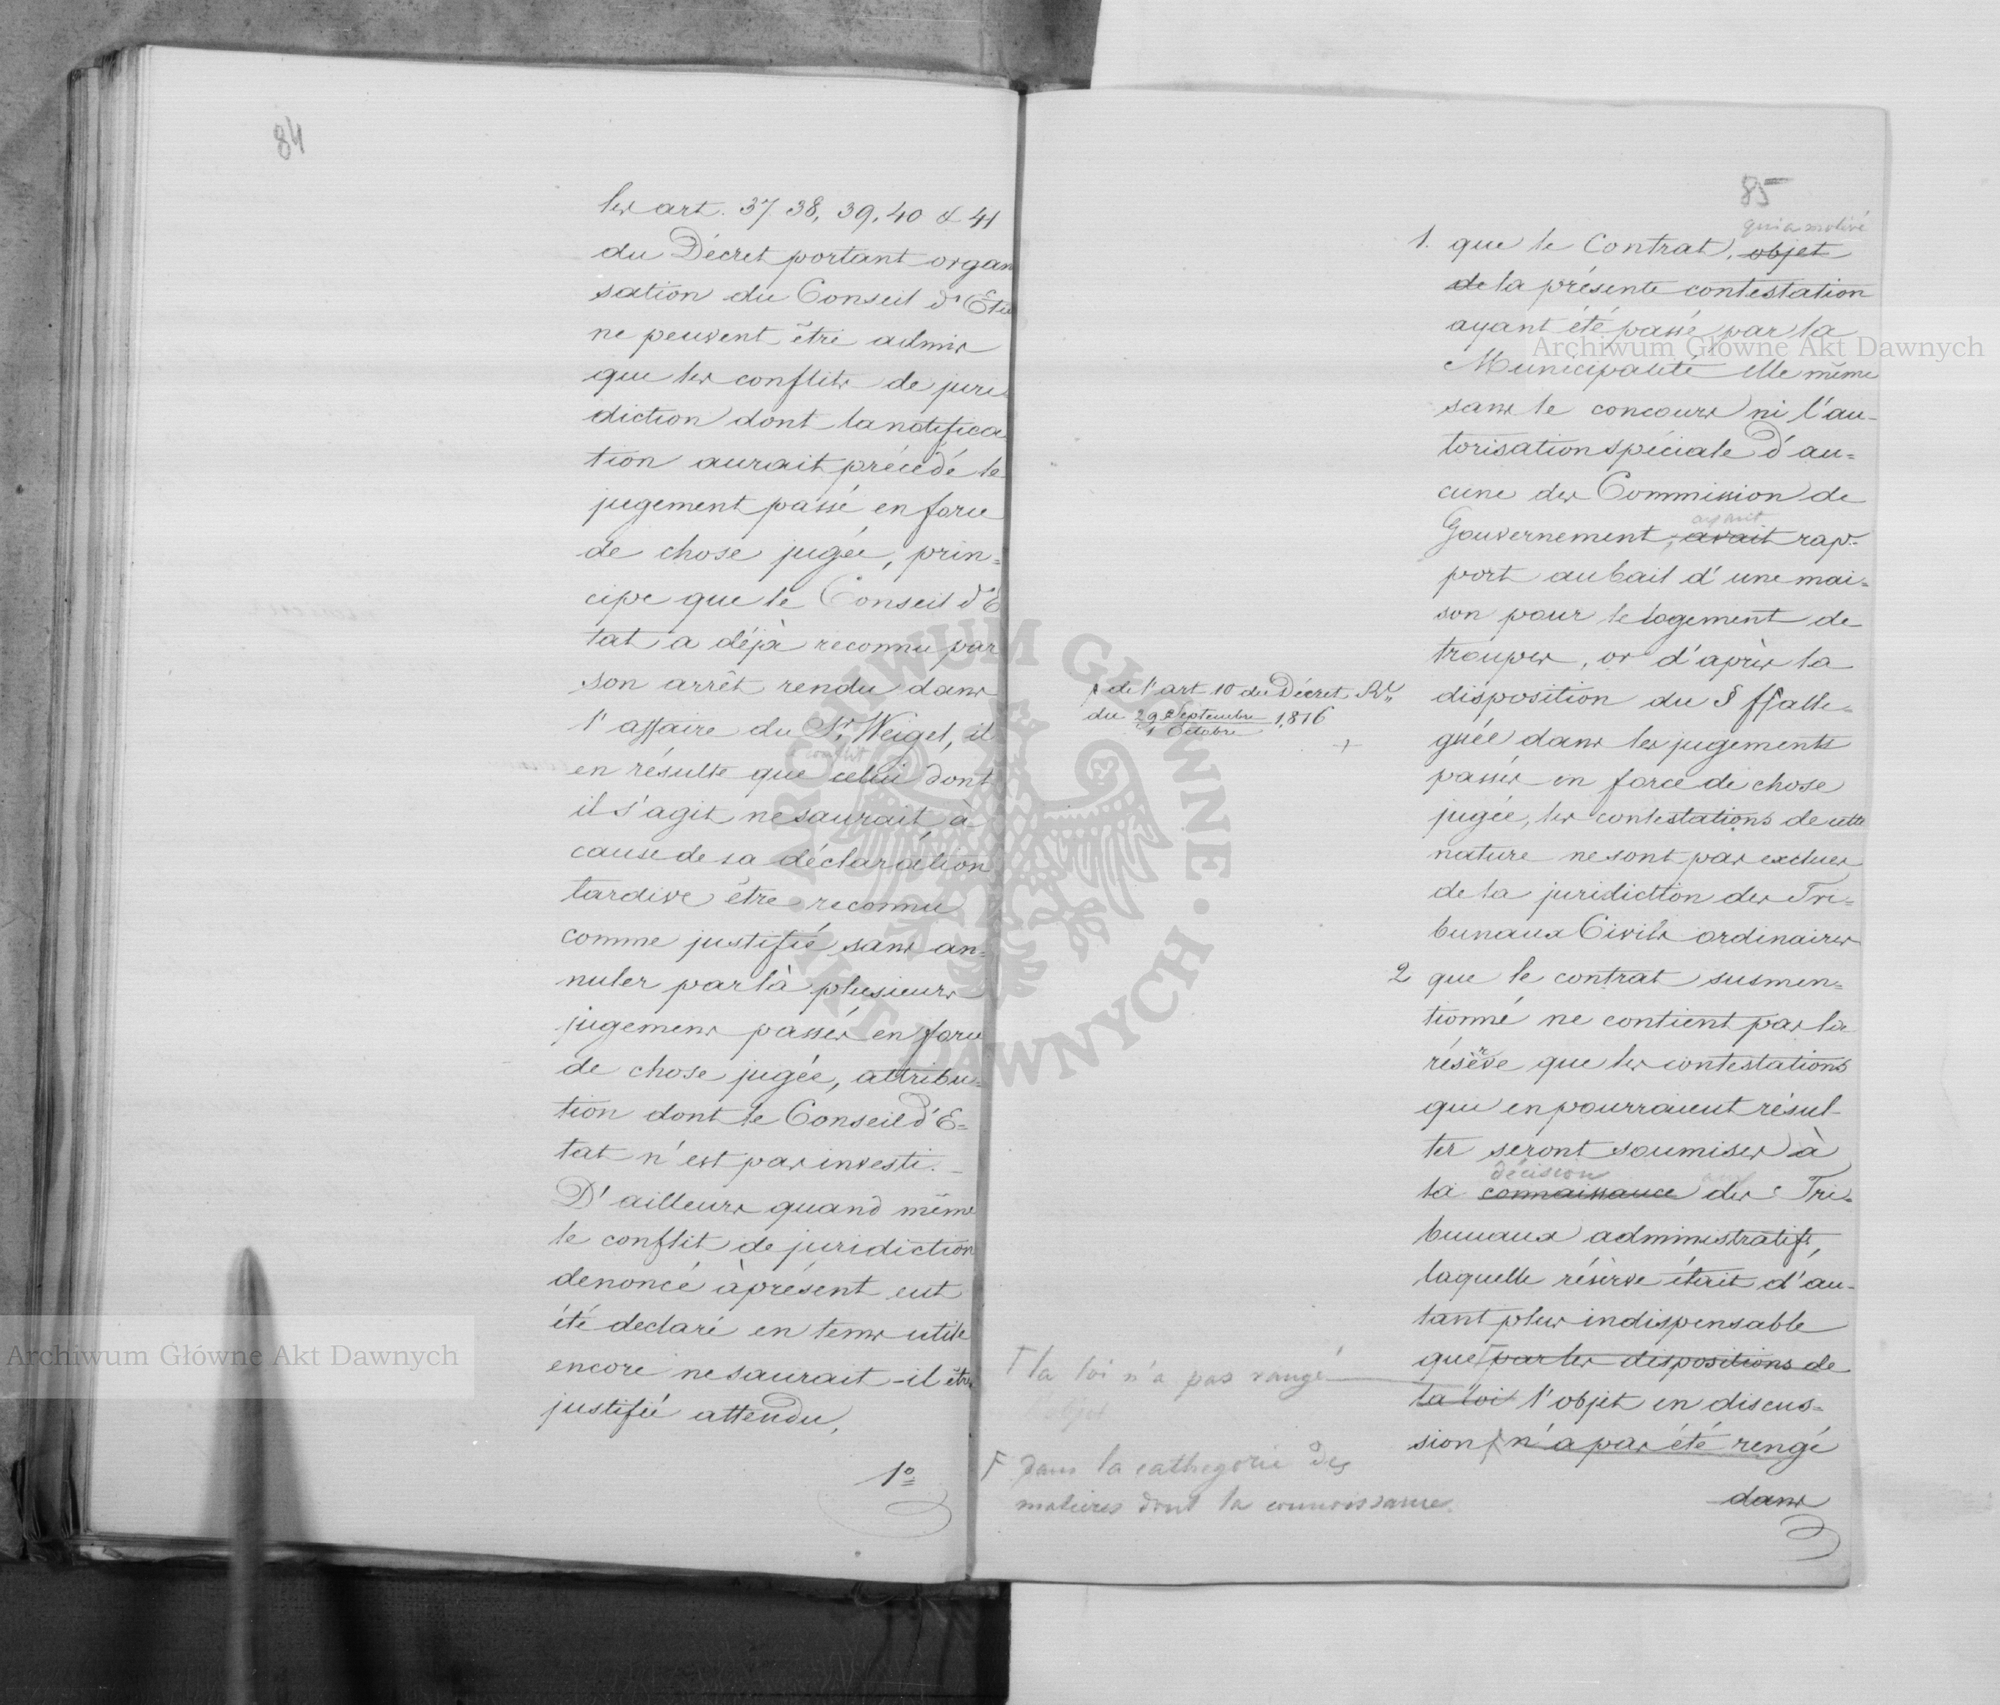 84
les art. 37. 38, 39, 40 & 41
du Décret portant organ
sation du Conseil d'Eta
ne peuvent être admis
que les conflits de juri
diction dont la notifica
tion aurait précédé le
jugement passé en force
de chose jugée, prin=
cipe que le Conseil d'E
tat a déjà reconnu par
son arrêt rendu dans
l'affaire du Sr Weigel, il
conflit
en résulte que celui dont
il s'agit ne saurait à
cause de sa déclaration
tardive être reconnu
comme justifié sans an=
nuler par là plusieurs
jugemens passés en force
de chose jugée, attribu=
tion dont le Conseil d'E=
tat n'est pas investi. _
D'ailleurs quand même
le conflit de juridiction
denoncé àprésent eut
été declaré en tems utile
encore ne saurait-il être
justifié attendu,
1º
85
qui a motivé
1. que le Contrat, objet
de la présente contestation
ayant été passé par la
Municipalité elle même
sans le concours ni l'au-
torisation spéciale d'au=
cune des Commission de
ayant
Gouvernement, avait rap-
port au bail d'une mai=
son pour le logement de
troupes, or d'après la
disposition du § ff alle=
guée dans les jugements
passés en force de chose
jugée, les contestations de cette
nature ne sont pas exclues
de la juridiction des Tri=
bunaux Civils ordinaires
2 que le contrat susmen=
tionné ne contient pas la
réserve que les contestations
que en pourraient résul-
ter seront soumises à
décision
la connaissance des Tri=
bunaux administratifs,
laquelle réserve était d'au-
tant plus indispensable
que par les dispositions de
la loi l'objet en discus=
sion n'a pas été rengé
dans
de l'art 10 du Décret Rl
du 29 Septembre 1816
1 Octobre
la loi n'a pas rangé
dans la cathegorie des
matières dont la connoissance
Archiwum Główne Akt Dawnych
Archiwum Główne Akt Dawnych
ARCHIWUM GŁÓWNE AKT DAWNYCH